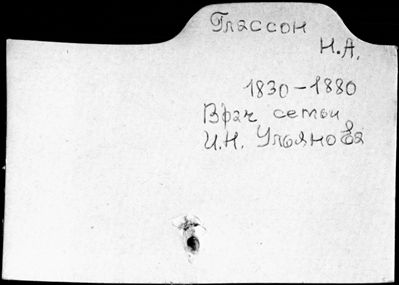 Глассон
Н.А.
1830-1880
Врач семьи
И.Н. Ульянова